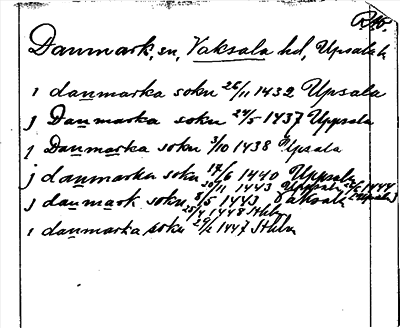 RA.
Danmark, sn, Vaksala hd, Upsala l.
i danmarka sokn 26/11 1432 Upsala
j Danmarka sokn 24/5 1437 Uppsala
j Danmarka sokn 3/10 1438 Upsala
j danmarka sokn 17/6 1440 Uppsala
30/11 1443 Uppsala 24/6 1444 (Upsala)
j danmark sokn, 8/5 1443 Vaksala
25/4 1448 Sthlm
i danmarka sokn 29/1 1447 Sthlm